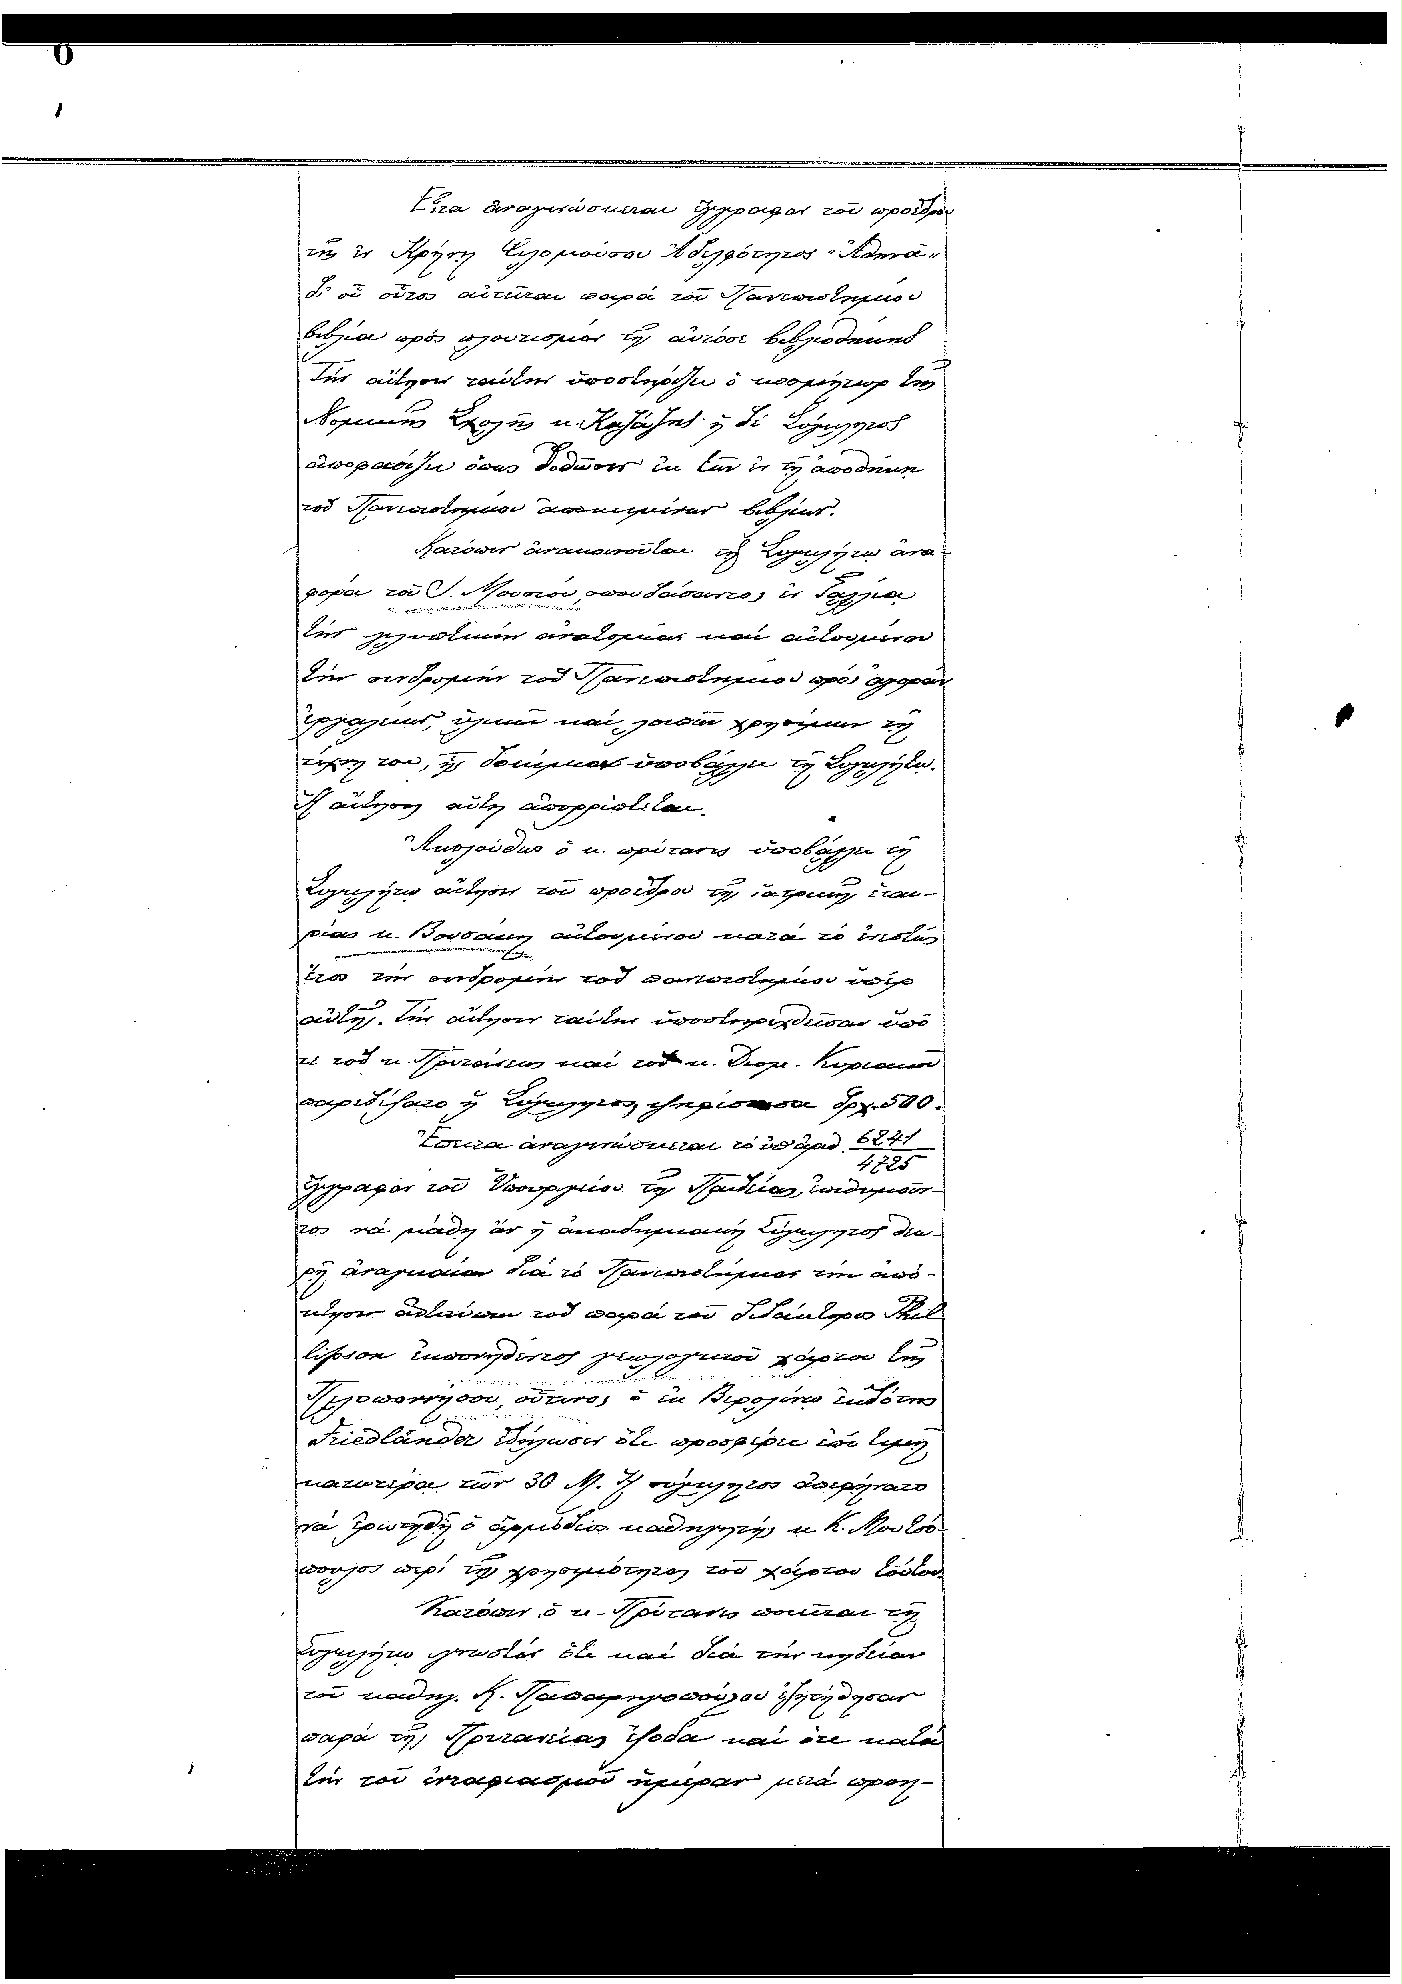 Εἶτα ἀναγινώσκεται ἔγγραφον τοῦ προέδρου
τῆς ἐν Κρήνῃ Φιλομούσου Ἀδελφότητος "Ἀθηνᾶ"
δι' οὗ οὗτος αἰτεῖται παρὰ τοῦ Πανεπιστημίου
βιβλία πρὸς πλουτισμὸν τῆς αὐτόσε βιβλιοθήκης
Τὴν αἴτησιν ταύτην ὑποστηρίζει ὁ κοσμήτωρ τῆς
Νομικῆς Σχολῆς κ. Καζάζης ἡ δὲ Σύγκλητος
ἀποφασίζει ὅπως δοθῶσιν ἐκ τῶν ἐν τῇ ἀποθήκῃ
τοῦ Πανεπιστημίου ἀποκειμένων βιβλίων.
Κατόπιν ἀνακοινοῦται τῇ Συγκλήτῳ ἀνα-
φορὰ τοῦ Μουσιού, σπουδάσαντος ἐν Γαλλίᾳ
τὴν γλυπτικὴν ἀνατομίαν καὶ αἰτουμένου
τὴν συνδρομὴν τοῦ Πανεπιστημίου πρὸς ἀγορὰν
ἐργαλείων, ὑλικοῦ καὶ λοιπῶν χρησίμων τῇ
τέχνῃ του, ἧς δοκίμιον ὑποβάλλει τῇ Συγκλήτῳ.
Ἡ αἴτησις αὕτη ἀπορρίπτεται.
Ἀκολούθως ὁ κ. πρύτανις ὑποβάλλει τῇ
Συγκλήτῳ αἴτησιν τοῦ προέδρου τῆς ἰατρικῆς ἑται-
ρίας κ. Βουσάκη αἰτουμένου κατὰ τὸ ἐνεστὼς
ἔτος τὴν συνδρομὴν τοῦ πανεπιστημίου ὑπὲρ
αὐτῆς. Τὴν αἴτησιν ταύτην ὑποστηριχθεῖσαν ὑπό
τε τοῦ κ. Πρυτάνεως καὶ τοῦ κ. Διομ. Κυριακοῦ
παρεδέξατο ἡ Σύγκλητος ψηφίσασα δρχ. 500.
Ἔπειτα ἀναγινώσκεται τὸ ὑπ' ἀριθ. 6241
4725
ἔγγραφον τοῦ Ὑπουργείου τῆς Παιδείας, ἐπιθυμοῦν-
τος νὰ μάθῃ ἂν ἡ ἀκαδημαϊκὴ Σύγκλητος θεω-
ρῇ ἀναγκαίαν διὰ τὸ Πανεπιστήμιον τὴν ἀπό-
κτησιν ἀντιτύπων τοῦ παρὰ τοῦ διδάκτορος Phil
lipson ἐκπονηθέντος γεωλογικοῦ χάρτου τῆς
Πελοποννήσου, οὗτινος ὁ ἐν Βερολίνῳ ἐκδότης
Friedländer ἐδήλωσεν ὅτι προσφέρει ἐπὶ τιμῇ
κατωτέρᾳ τῶν 30 Μ. Ἡ σύγκλητος ἀπεφήνατο
νὰ ἐρωτηθῇ ὁ ἁρμόδιος καθηγητὴς κ. Κ. Μουτσό-
πουλος περὶ τῆς χρησιμότητος τοῦ χάρτου τούτου.
Κατόπιν ὁ κ. Πρύτανις ποιεῖται τῇ
Συγκλήτῳ γνωστὸν ὅτι καὶ διὰ τὴν κηδείαν
τοῦ καθηγ. Κ. Παπαρρηγοπούλου ἐζητήθησαν
παρὰ τῆς Πρυτανείας ἔξοδα καὶ ὅτι κατὰ
τὴν τοῦ ἐνταφιασμοῦ ἡμέραν μετὰ προη-